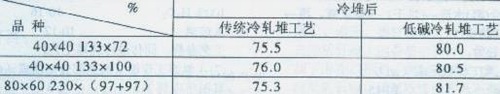 % 冷堆后
品种 传统冷轧堆工艺 低碱冷轧堆工艺
40×40 133×72 75.5 80.0
40×40 133×100 76.0 80.5
80×60 230×(97+97) 75.3 81.7